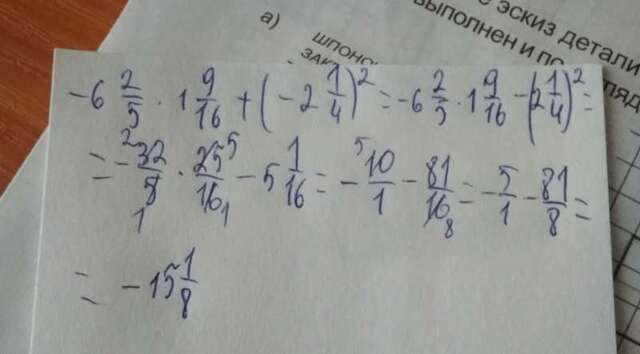 е эскиз детали
а)
выполнен и по
шпоно
зак
ляд
-6 2/5 · 1 9/16 + (-2 1/4)² = -6 2/5 · 1 9/16 - (2 1/4)² =
= - 2 32/5 1 · 25 5/16 1 - 5 1/16 = - 5 10/1 - 81/16 8 = - 5/1 - 81/8 =
= -15 1/8